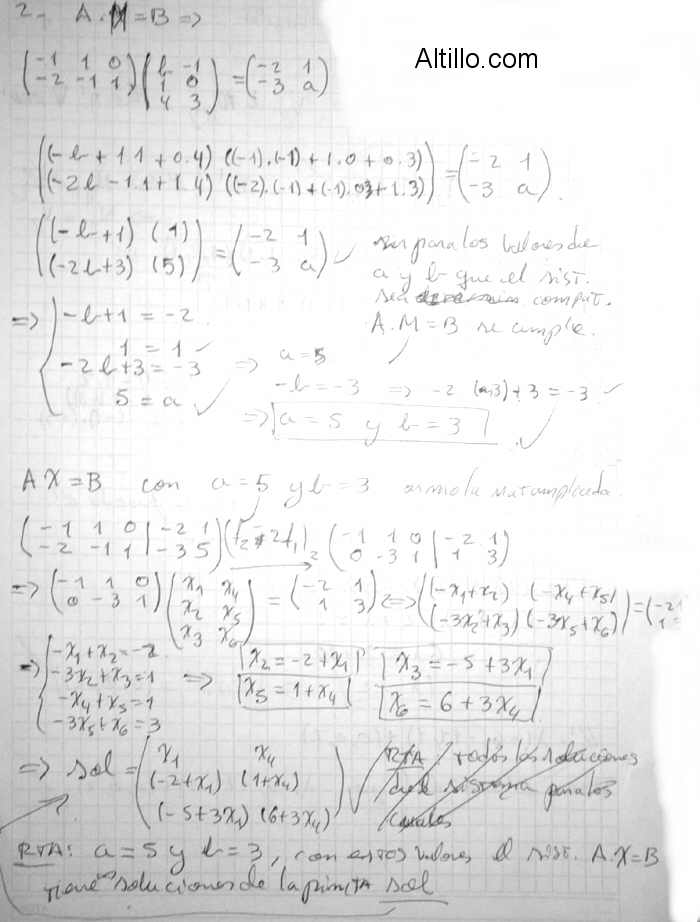 2- A.M=B =>
Altillo.com
(-1 1 0
-2 -1 1) (b -1
1 0
4 3) = (-2 1
-3 a)
((-b+1.1+0.4) ((-1).(-1)+1.0+0.3)
(-2b-1.1+1.4) ((-2).(-1)+(-1).0+1.3)) = (-2 1
-3 a).
((-b+1) (1)
(-2b+3) (5)) = (-2 1
-3 a) ✓
para los valores de
a y b que el sist.
sea compat.
A.M=B se cumple.
=> {-b+1 = -2
1 = 1 ✓
-2b+3 = -3
5 = a ✓
=> a=5
-b=-3 => -2 (3)+3 = -3 ✓
=> a=5 y b=3
AX=B con a=5 y b=3 armo la mat ampliada.
(-1 1 0 | -2 1
-2 -1 1 | -3 5) (f2-2f1)2 → (-1 1 0 | -2 1
0 -3 1 | 1 3)
=> (-1 1 0
0 -3 1) (x1 x4
x2 x5
x3 x6) = (-2 1
1 3) <=> ((-x1+x2) (-x4+x5)
(-3x2+x3) (-3x5+x6)) = (-2
1
=> {-x1+x2=-2
-3x2+x3=1
-x4+x5=1
-3x5+x6=3
=> x2=-2+x1 x3=-5+3x1
x5=1+x4 x6=6+3x4
=> sol = (x1 x4
(-2+x1) (1+x4)
(-5+3x1) (6+3x4)) ✓
RTA / todos las soluciones
del sistema para los
cuales
RTA: a=5 y b=3, con estos valores el sist. A.X=B
tiene soluciones de la pinita sol